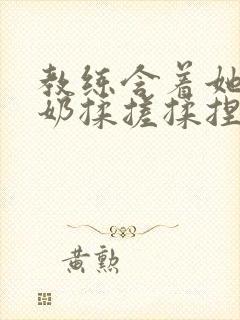 教练含着她
奶揉搓揉捏
黄勲